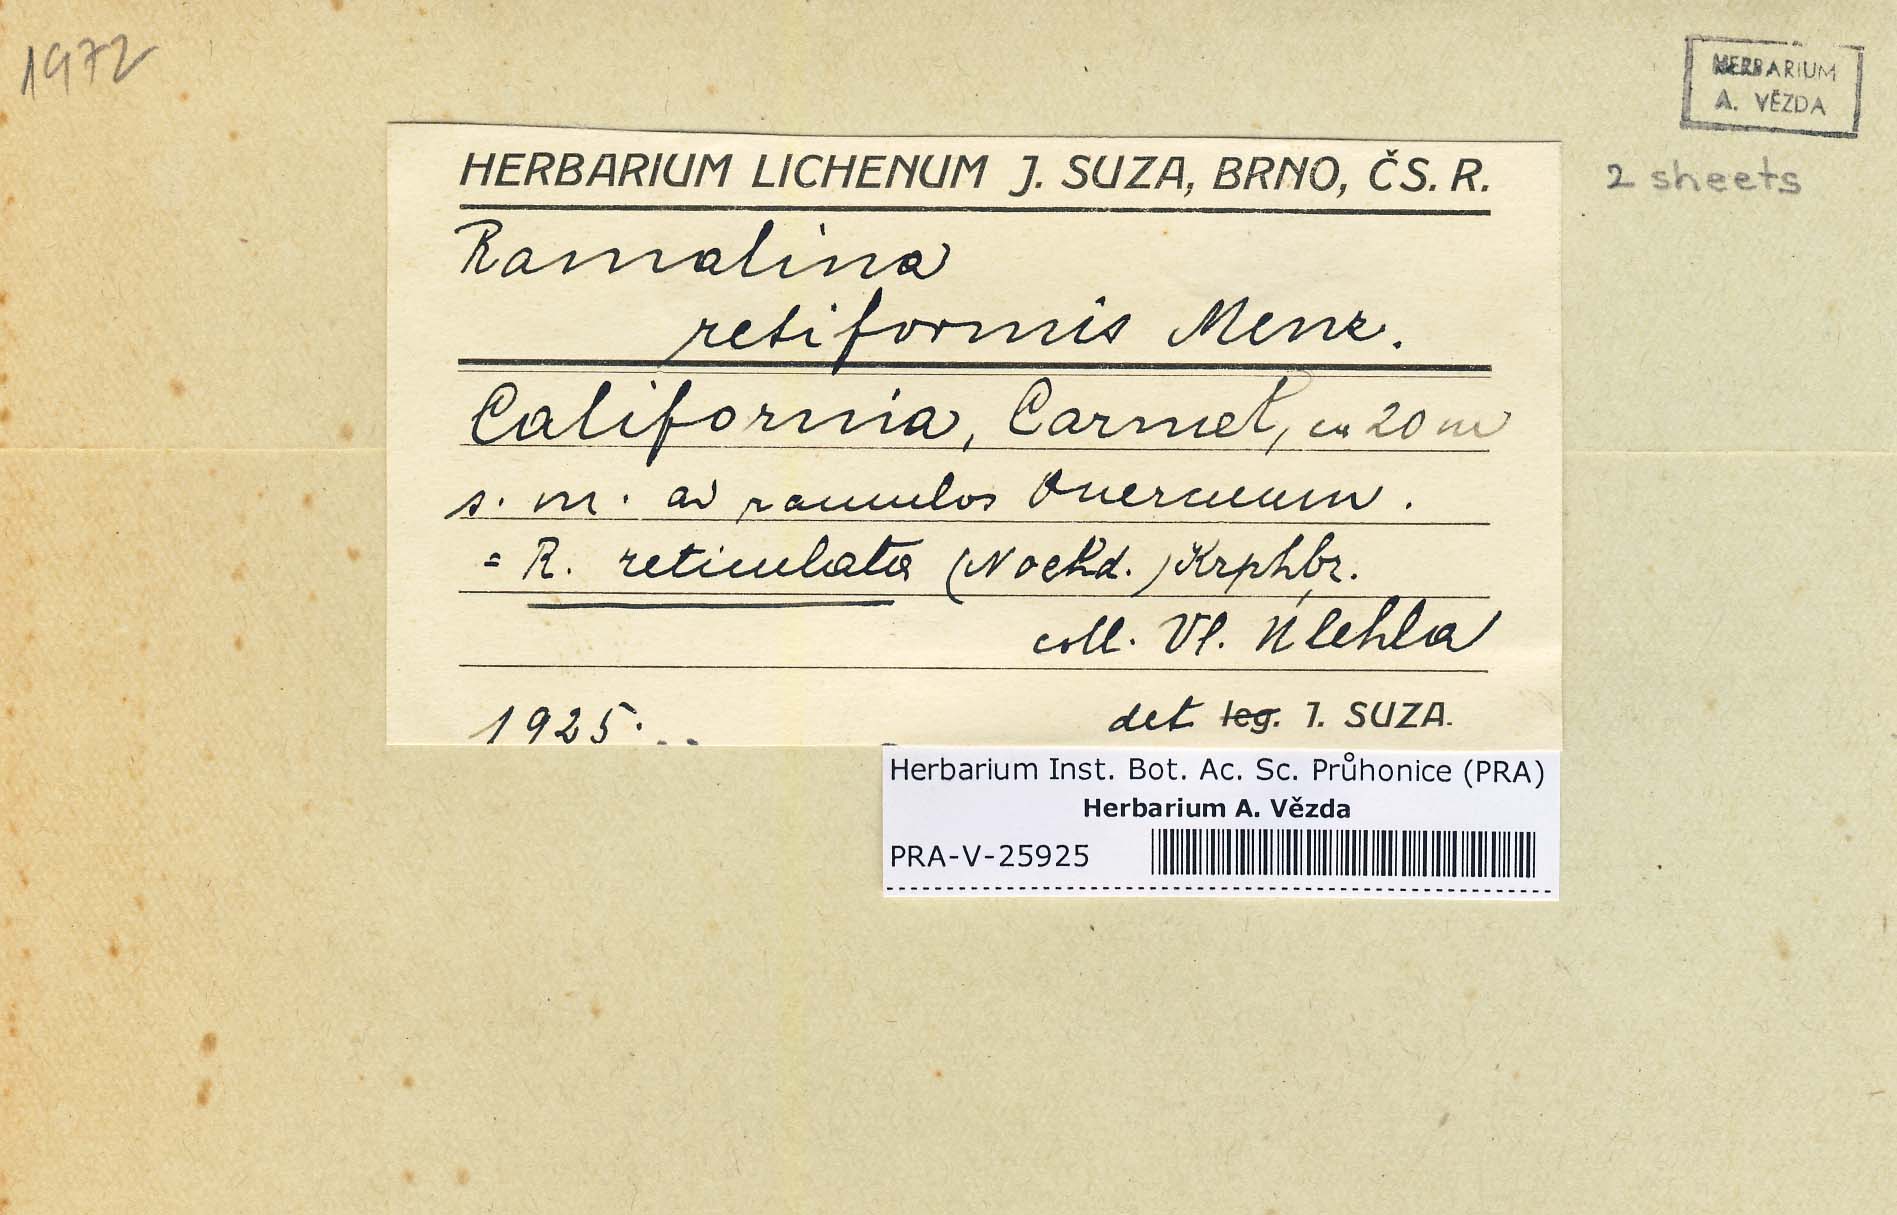 1972
HERBARIUM
A. VĚZDA
2 sheets
HERBARIUM LICHENUM J. SUZA, BRNO, ČS. R.
Ramalina
retiformis Menz.
California, Carmel, ca 20 m
s. m. ad ramulos Quercuum.
= R. reticulata (Noehd.) Krphbr.
coll. Vl. Úlehla
1925.
det leg. J. SUZA.
Herbarium Inst. Bot. Ac. Sc. Průhonice (PRA)
Herbarium A. Vězda
PRA-V-25925